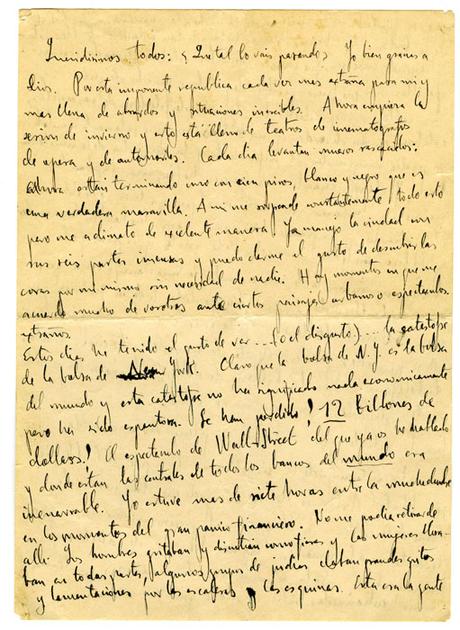 Queridisimos todos: ¿Que tal lo vais pasando? Yo bien gracias a
Dios. Por esta imponente republica cada vez mas extraña para mi y
mas llena de absurdos y situaciones increibles. Ahora empieza la
sesion de invierno y esto está lleno de teatros de cinematografos
de opera y de automoviles. Cada dia levantan nuevos rascacielos:
Ahora están terminando uno con cien pisos, blanco y negro que es
una verdadera maravilla. A mi me sorprende constantemente todo esto
pero me aclimato de excelente manera. Ya manejo la ciudad en
sus seis partes inmensas y puedo darme el gusto de descubrir las
cosas por mi mismo sin necesidad de nadie. Hay momentos en que me
acuerdo mucho de vosotros ante ciertos paisajes urbanos o espectaculos
extraños.
Estos dias he tenido el gusto de ver.... (o el disgusto)... la catastrofe
de la bolsa de New York. Claro que la bolsa de N.Y. es la bolsa
del mundo y esta catastrofe no ha significado nada economicamente
pero ha sido espantosa. Se han perdido ¡12 Billones de
dollars! El espectaculo de Wall-Street del que ya os he hablado
y donde están las centrales de todos los bancos del mundo era
inenarrable. Yo estuve mas de siete horas entre la muchedumbre
en los momentos del gran panico financiero. No me podia retirar de
alli. Los hombres gritaban y discutian como fieras y las mujeres llora-
ban en todas partes, algunos grupos de judios daban grandes gritos
y lamentaciones por las escaleras y las esquinas. Esta era la gente